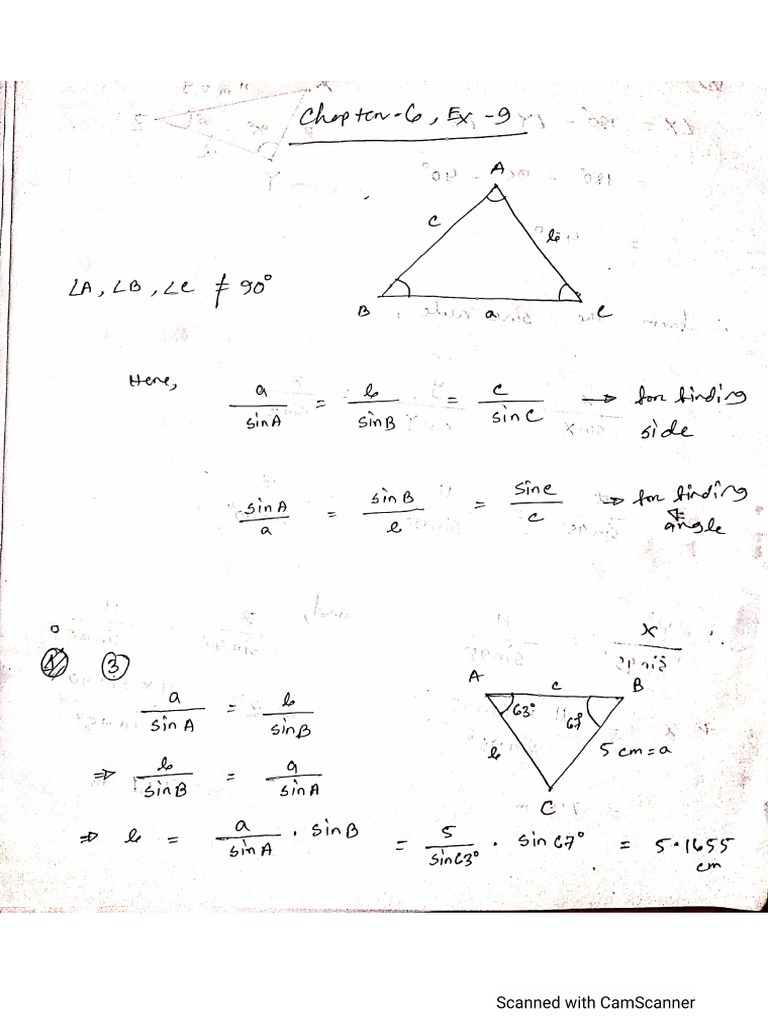 Chapter-6, Ex-9
A
c
b
∠A, ∠B, ∠C ≠ 90°
B
a
C
Here,
a/sinA = b/sinB = c/sinC → for finding
side
sinA/a = sinB/b = sinC/c → for finding
angle
③
a/sinA = b/sinB
A
c
B
63°
67°
b
5 cm = a
C
⇒ b/sinB = a/sinA
⇒ b = a/sinA · sinB = 5/sin63° · sin67° = 5.1655
cm
Scanned with CamScanner